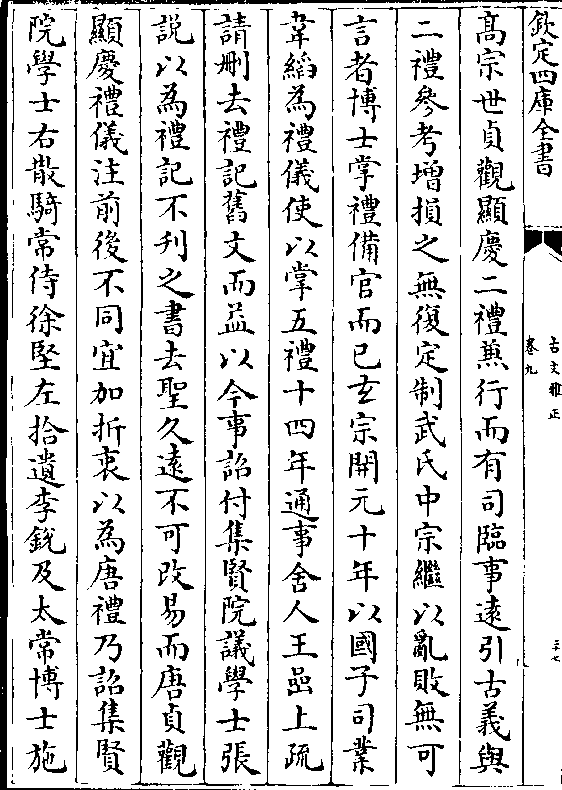 欽定四庫全書
古文雅正
卷九
三七
高宗世貞觀顯慶二禮兼行而有司臨事遠引古義與
二禮參考增損之無復定制武氏中宗繼以亂敗無可
言者博士掌禮備官而已玄宗開元十年以國子司業
韋縚為禮儀使以掌五禮十四年通事舍人王嵒上疏
請刪去禮記舊文而益以今事詔付集賢院議學士張
說以為禮記不刋之書去聖久遠不可改易而唐貞觀
顯慶禮儀注前後不同宜加折衷以為唐禮乃詔集賢
院學士右散騎常侍徐堅左拾遺李銳及太常博士施